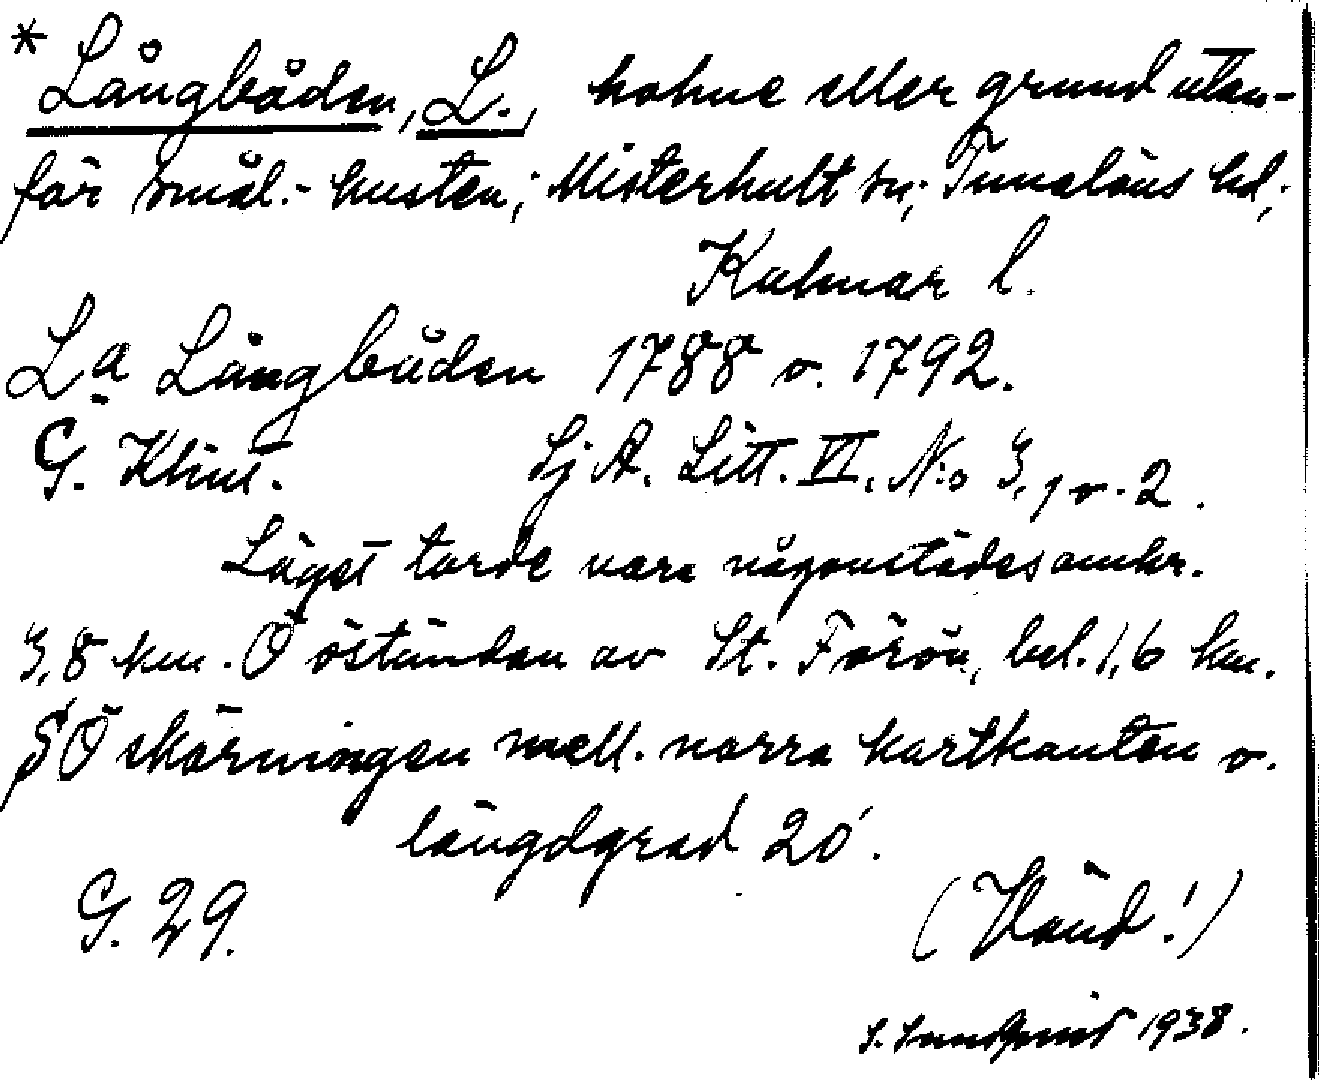 * Långbåden, L., holme eller grund utan-
för smål.-kusten; Misterhult sn; Tunaläns hd;
Kalmar l.
La Långbåden 1788 o. 1792.
G. Klint. SjA. Litt. VI. No 3, 1 o. 2.
Läget torde vara någonstädes omkr.
3,8 km. Ö öständen av St. Förön, bel. 1,6 km.
SÖ skärningen mell. norra kartkanten o.
längdgrad 20'.
G. 29. (Vänd!)
S. Sundqvist 1938.